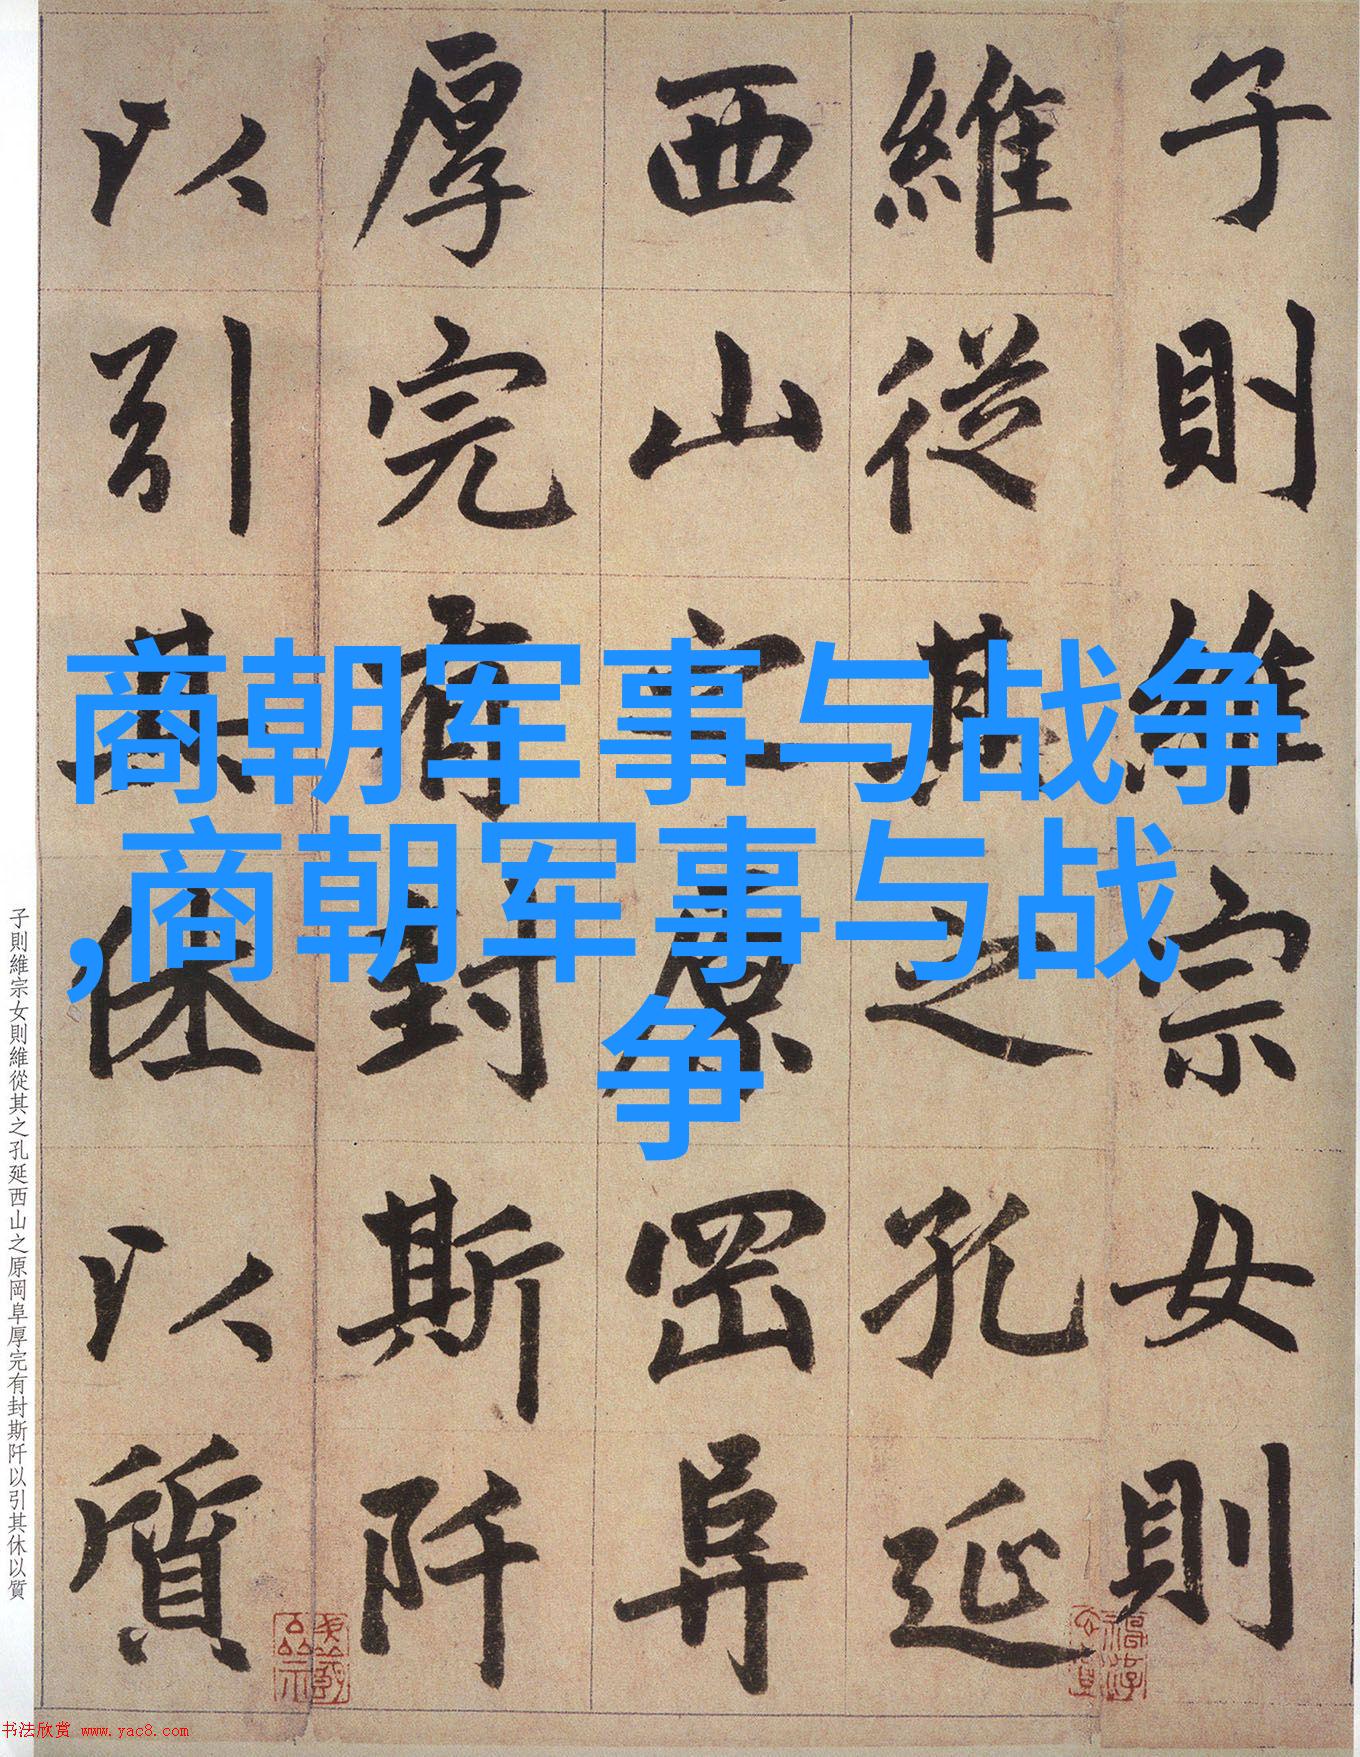 子則維宗女則
維從其之孔延
西山之原岡阜
厚完有封斯阡
以引其休以質
商朝军事与战争
,商朝军事与战
争
子則維宗女則維從其之孔延西山之原岡阜厚完有封斯阡以引其休以質
书法欣赏 www.yac8.com